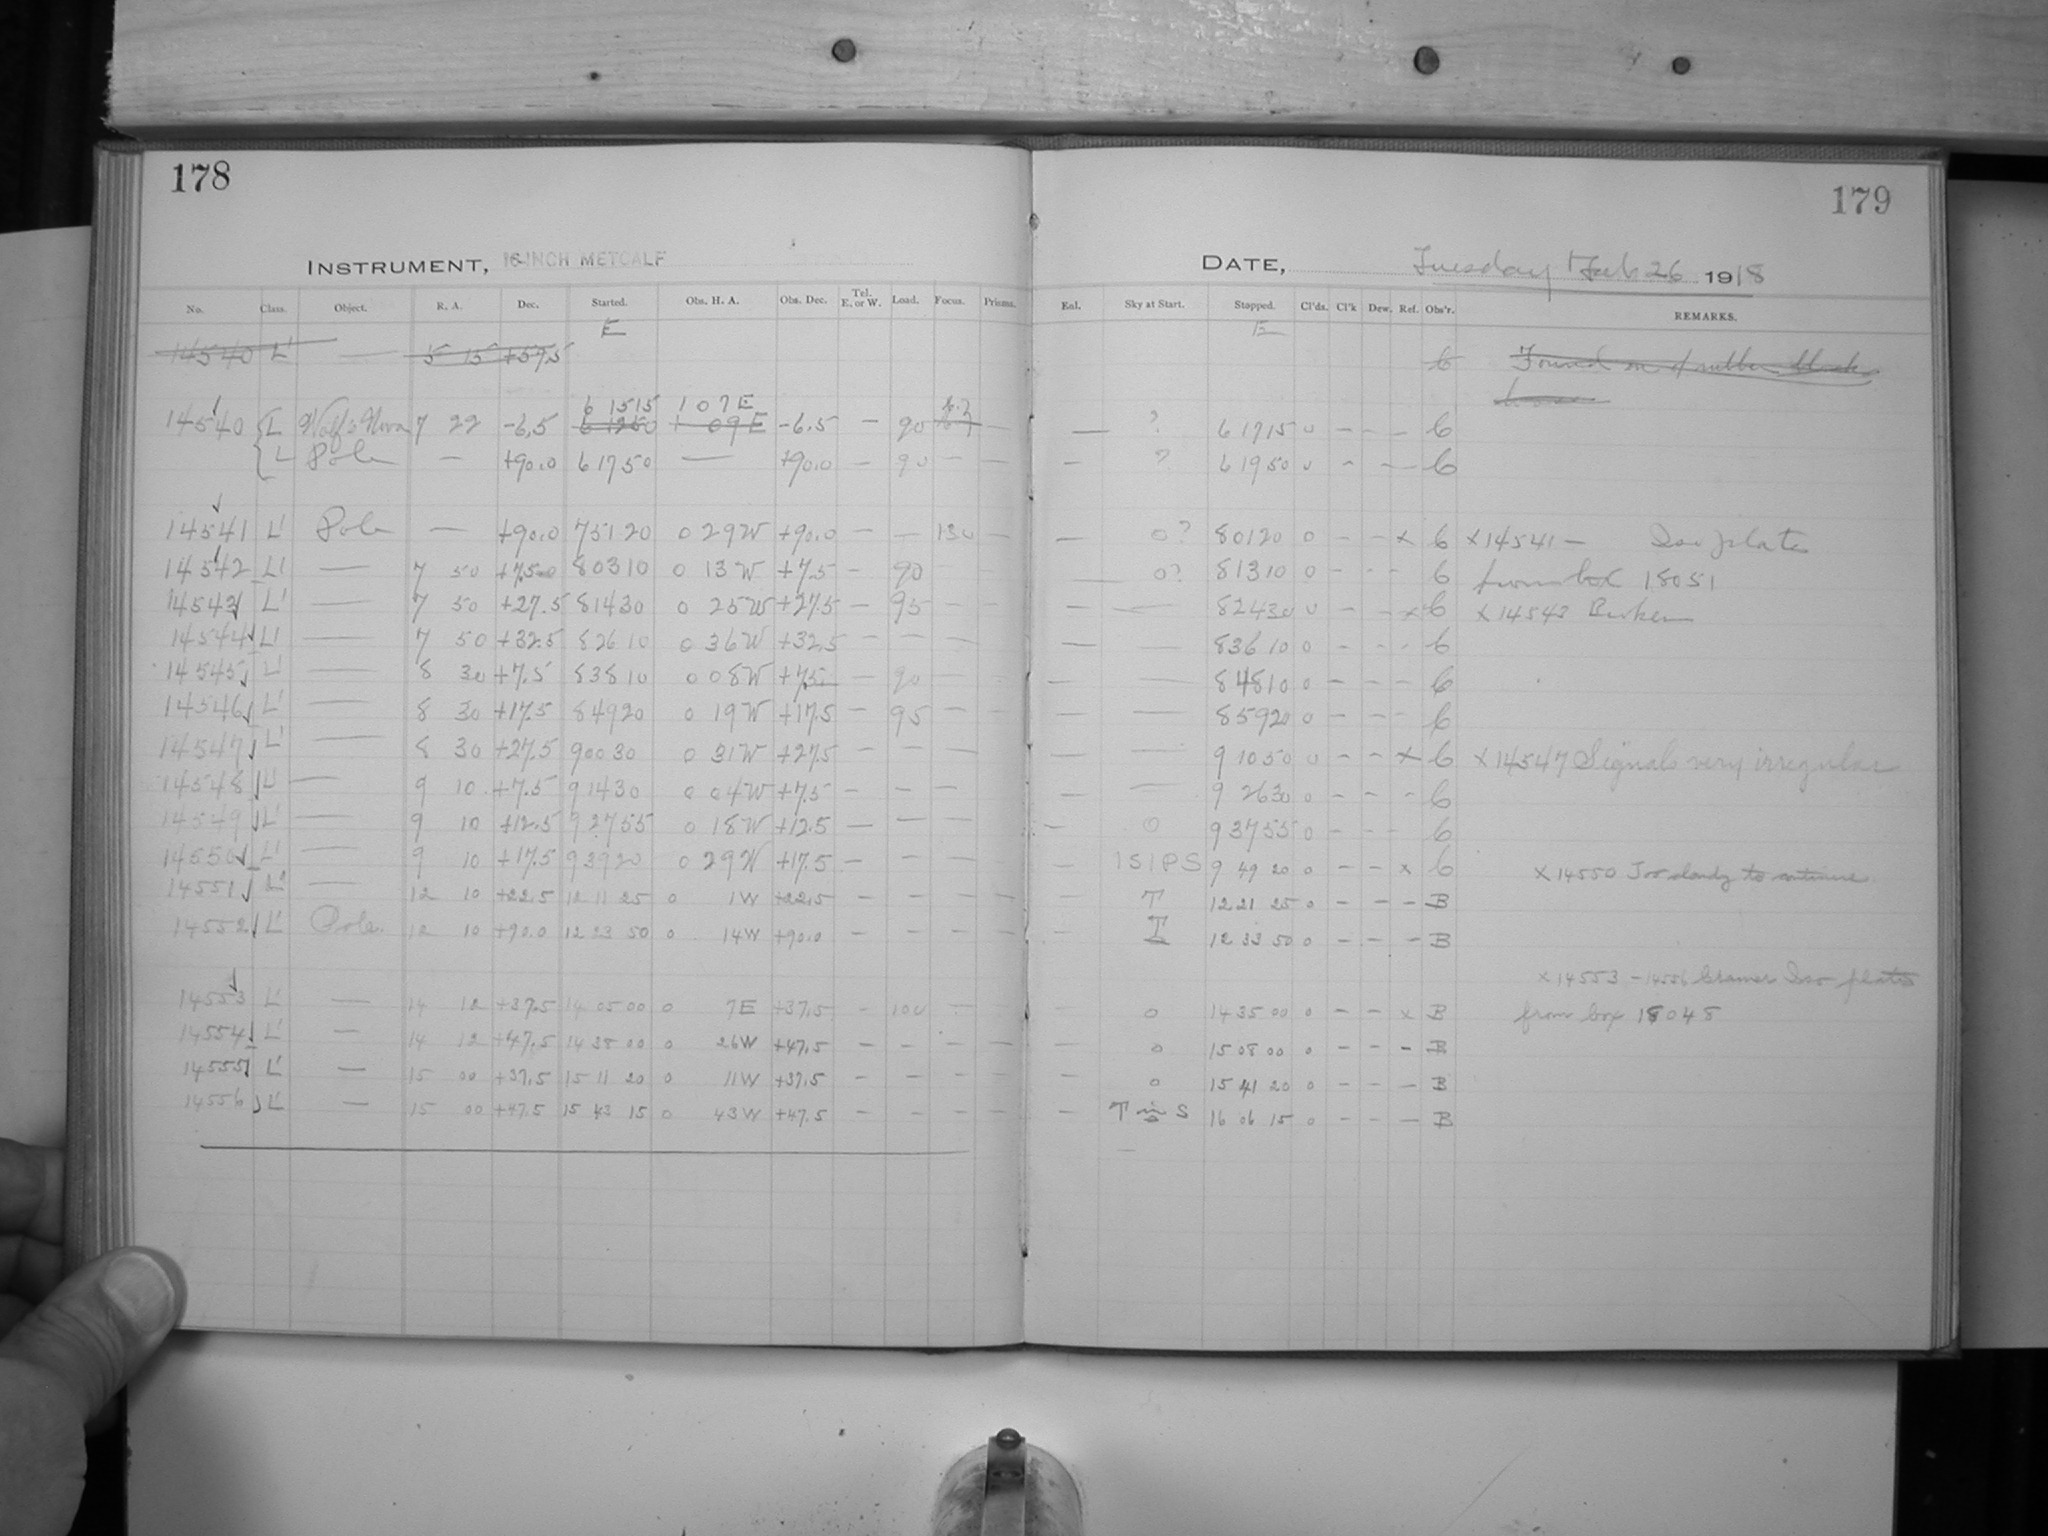 178
179
INSTRUMENT, 16-INCH METCALF
DATE, Tuesday Feb 26 1918
No. Class. Object. R. A. Dec. Started. Obs. H. A. Obs. Dec. Tel. E. or W. Load. Focus. Prisms. Enl. Sky at Start. Stopped. Cl'ds. Cl'k Dew. Ref. Obs'r. REMARKS.
E E
14540 L' — 5 15 +59.5 6 Found
6 15 15 1 07 E
14540 L Wolf's Nova 7 22 -6.5 6 12 50 1 09 E -6.5 — 90 — — ? 6 17 15 0 - - - 6
L Pole — +90.0 6 17 50 — +90.0 — 90 — — — ? 6 19 50 0 - - - 6
14541 L' Pole — +90.0 7 51 20 0 29 W +90.0 — — 130 — — 0? 8 01 20 0 - - x 6 x 14541 — Iso plate
14542 L' — 7 50 +7.5 8 03 10 0 13 W +7.5 — 90 — — — 0? 8 13 10 0 - - - 6 from box 18051
14543 L' — 7 50 +27.5 8 14 30 0 25 W +27.5 — 95 — — — — 8 24 30 0 - - x 6 x 14543 Broken
14544 L' — 7 50 +32.5 8 26 10 0 36 W +32.5 — — — — — 8 36 10 0 - - - 6
14545 L' — 8 30 +7.5 8 38 10 0 08 W +7.5 — 90 — — — — 8 48 10 0 - - - 6
14546 L' — 8 30 +17.5 8 49 20 0 19 W +17.5 — 95 — — — — 8 59 20 0 - - - 6
14547 L' — 8 30 +27.5 9 00 30 0 31 W +27.5 — — — — — 9 10 50 0 - - x 6 x 14547 Signals very irregular
14548 L' — 9 10 +7.5 9 14 30 0 04 W +7.5 — — — — — 9 26 30 0 - - - 6
14549 L' — 9 10 +12.5 9 27 55 0 18 W +12.5 — — — — 0 9 37 55 0 - - - 6
14550 L' — 9 10 +17.5 9 39 20 0 29 W +17.5 — — — — 1S1PS 9 49 20 0 - - x 6 x 14550 Too cloudy to continue
14551 L' — 12 10 +22.5 12 11 25 0 1 W +22.5 — — — — — T 12 21 25 0 - - - B
14552 L' Pole 12 10 +90.0 12 23 50 0 14 W +90.0 — — — — — T 12 33 50 0 - - - B
x 14553 - 14556 Cramer Iso plates
14553 L' — 14 12 +37.5 14 05 00 0 7 E +37.5 - 100 — — — 0 14 35 00 0 - - x B from box 18048
14554 L' — 14 12 +47.5 14 38 00 0 26 W +47.5 — — — — — 0 15 08 00 0 - - - B
14555 L' — 15 00 +37.5 15 11 20 0 11 W +37.5 — — — — — 0 15 41 20 0 - - - B
14556 L' — 15 00 +47.5 15 43 15 0 43 W +47.5 — — — — — T in S 16 06 15 0 - - - B